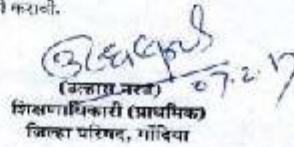 करावी.
07.2.17
(उल्हास नरड)
शिक्षणाधिकारी (प्राथमिक)
जिल्हा परिषद, गोंदिया